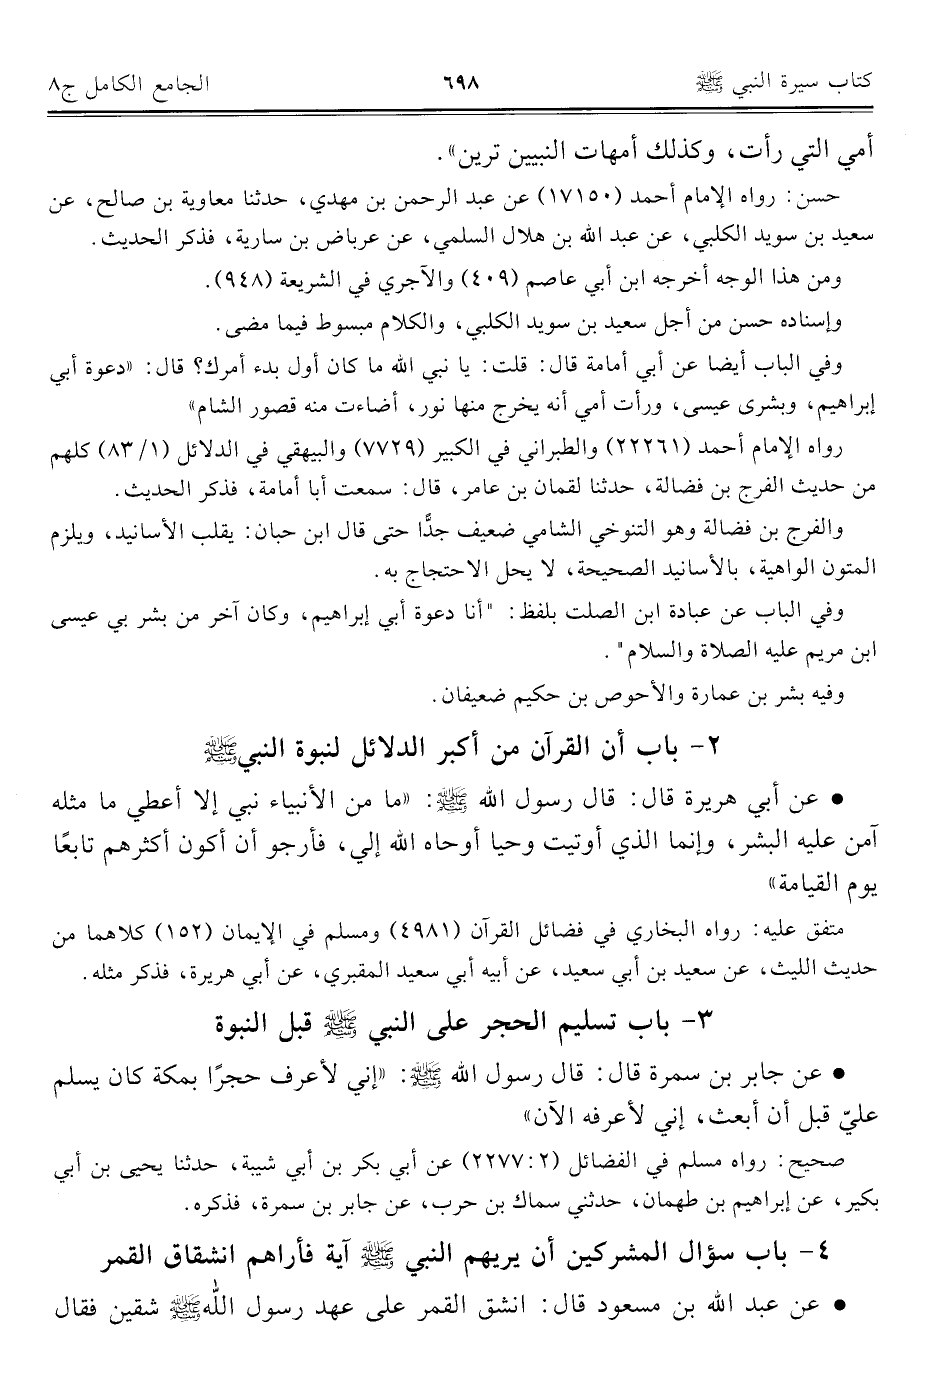 كتاب سيرة النبي ﷺ ٦٩٨ الجامع الكامل ج٨
أمي التي رأت، وكذلك أمهات النبيين ترين».
حسن: رواه الإمام أحمد (١٧١٥٠) عن عبد الرحمن بن مهدي، حدثنا معاوية بن صالح، عن
سعيد بن سويد الكلبي، عن عبد الله بن هلال السلمي، عن عرباض بن سارية، فذكر الحديث.
ومن هذا الوجه أخرجه ابن أبي عاصم (٤٠٩) والآجري في الشريعة (٩٤٨).
وإسناده حسن من أجل سعيد بن سويد الكلبي، والكلام مبسوط فيما مضى.
وفي الباب أيضا عن أبي أمامة قال: قلت: يا نبي الله ما كان أول بدء أمرك؟ قال: «دعوة أبي
إبراهيم، وبشرى عيسى، ورأت أمي أنه يخرج منها نور، أضاءت منه قصور الشام»
رواه الإمام أحمد (٢٢٢٦١) والطبراني في الكبير (٧٧٢٩) والبيهقي في الدلائل (١/ ٨٣) كلهم
من حديث الفرج بن فضالة، حدثنا لقمان بن عامر، قال: سمعت أبا أمامة، فذكر الحديث.
والفرج بن فضالة وهو التنوخي الشامي ضعيف جدًّا حتى قال ابن حبان: يقلب الأسانيد، ويلزم
المتون الواهية، بالأسانيد الصحيحة، لا يحل الاحتجاج به.
وفي الباب عن عبادة ابن الصلت بلفظ: "أنا دعوة أبي إبراهيم، وكان آخر من بشر بي عيسى
ابن مريم عليه الصلاة والسلام".
وفيه بشر بن عمارة والأحوص بن حكيم ضعيفان.
٢- باب أن القرآن من أكبر الدلائل لنبوة النبي ﷺ
● عن أبي هريرة قال: قال رسول الله ﷺ: «ما من الأنبياء نبي إلا أعطي ما مثله
آمن عليه البشر، وإنما الذي أوتيت وحيا أوحاه الله إلي، فأرجو أن أكون أكثرهم تابعًا
يوم القيامة»
متفق عليه: رواه البخاري في فضائل القرآن (٤٩٨١) ومسلم في الإيمان (١٥٢) كلاهما من
حديث الليث، عن سعيد بن أبي سعيد، عن أبيه أبي سعيد المقبري، عن أبي هريرة، فذكر مثله.
٣- باب تسليم الحجر على النبي ﷺ قبل النبوة
● عن جابر بن سمرة قال: قال رسول الله ﷺ: «إني لأعرف حجرًا بمكة كان يسلم
عليّ قبل أن أبعث، إني لأعرفه الآن»
صحيح: رواه مسلم في الفضائل (٢٢٧٧:٢) عن أبي بكر بن أبي شيبة، حدثنا يحيى بن أبي
بكير، عن إبراهيم بن طهمان، حدثني سماك بن حرب، عن جابر بن سمرة، فذكره.
٤- باب سؤال المشركين أن يريهم النبي ﷺ آية فأراهم انشقاق القمر
● عن عبد الله بن مسعود قال: انشق القمر على عهد رسول الله ﷺ شقين فقال